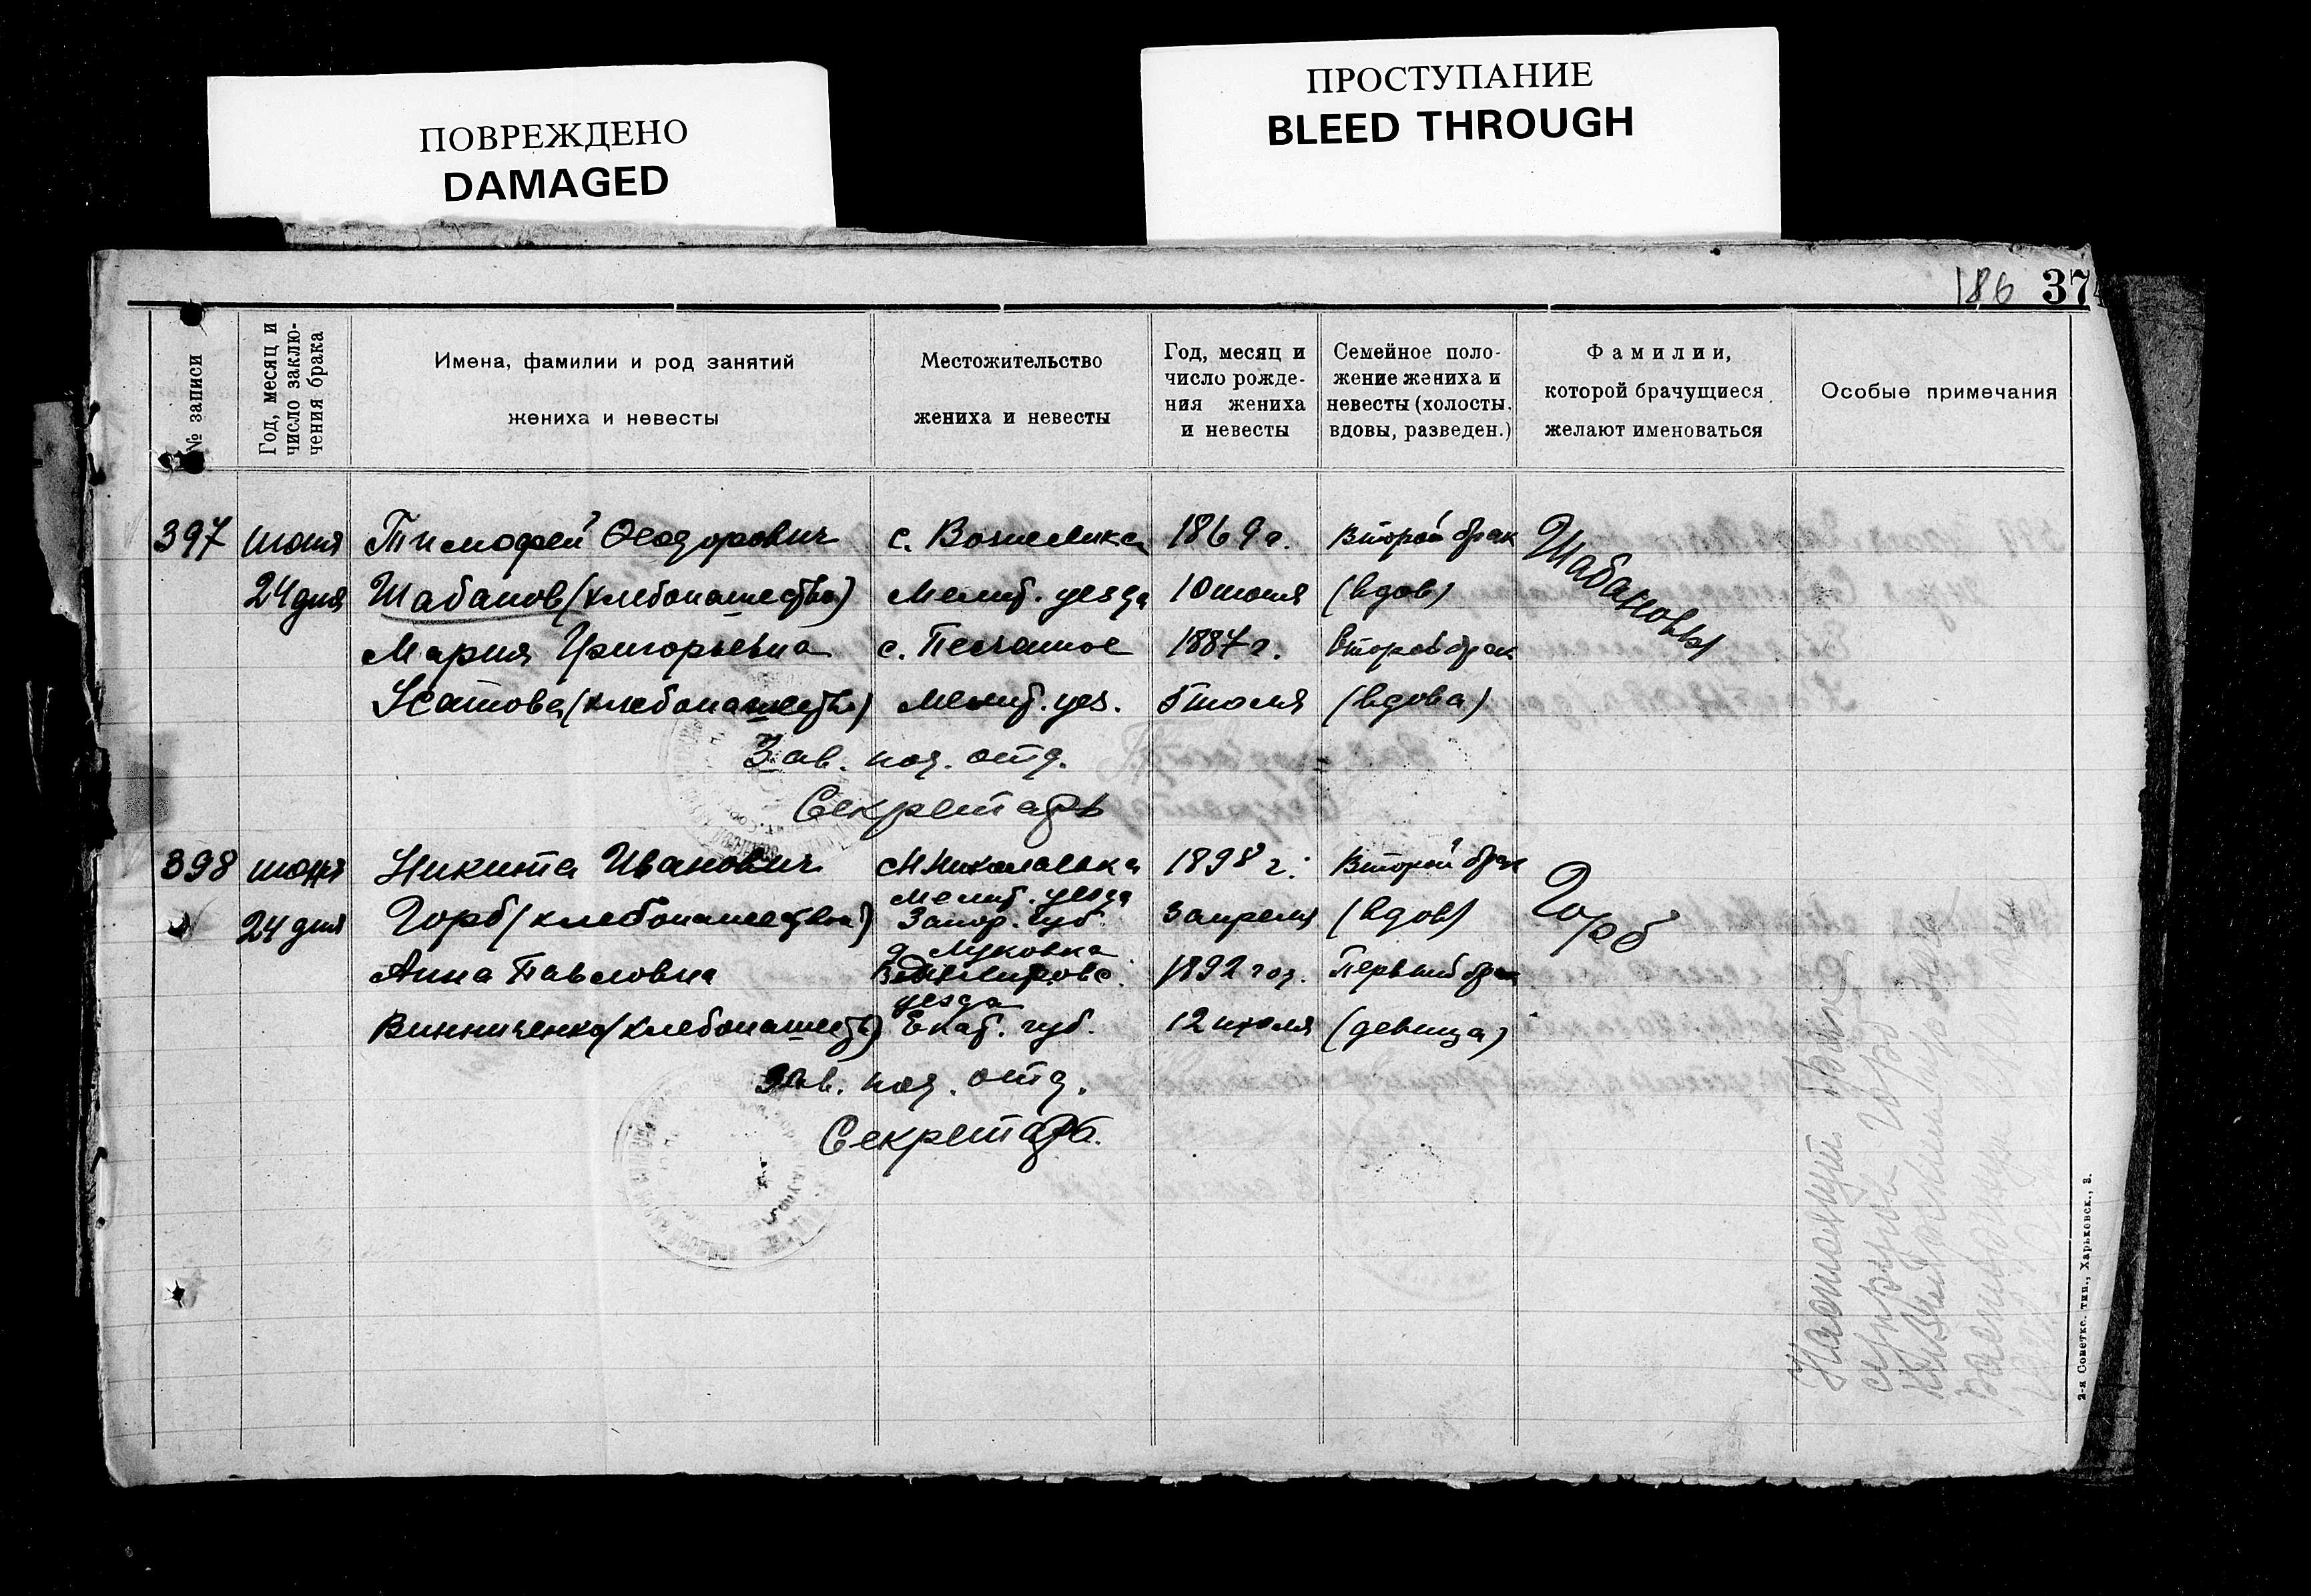 ПОВРЕЖДЕНО
DAMAGED
ПРОСТУПАНИЕ
BLEED THROUGH
186 37
№ записи
Год, месяц и
число заклю-
чения брака
Имена, фамилии и род занятий
жениха и невесты
Местожительство
жениха и невесты
Год, месяц и
число рожде-
ния жениха
и невесты
Семейное поло-
жение жениха и
невесты (холосты,
вдовы, разведен.)
Фамилии,
которой брачущиеся
желают именоваться
Особые примечания
397 июня Тимофей Феодорович с. Вознесенка 1869 г. Второй брак Шабановы
24 дня Шабанов (хлебопашество) Мелит. уезда 10 июня (вдов)
Мария Григорьевна с. Песчаное 1887 г. второй брак
Усатова (хлебопашеств) Мелит. уез. 5 июля (вдова)
Зав. под. отд.
Секретарь
398 июня Никита Иванович М Николаевка 1898 г. Второй брак Горб
Мелит. уезда
24 дня Горб (хлебопашество) Запор. губ. 3 апреля (вдов)
д. Луковка
Анна Павловна 1892 год. Первый брак
уезда
Винниченко (хлебопашеств) Екат. губ. 12 июля (девица)
Зав. под. отд.
Секретарь.
Настоящий брак
Горб
2-я Советск. тип., Харьковск., 3.